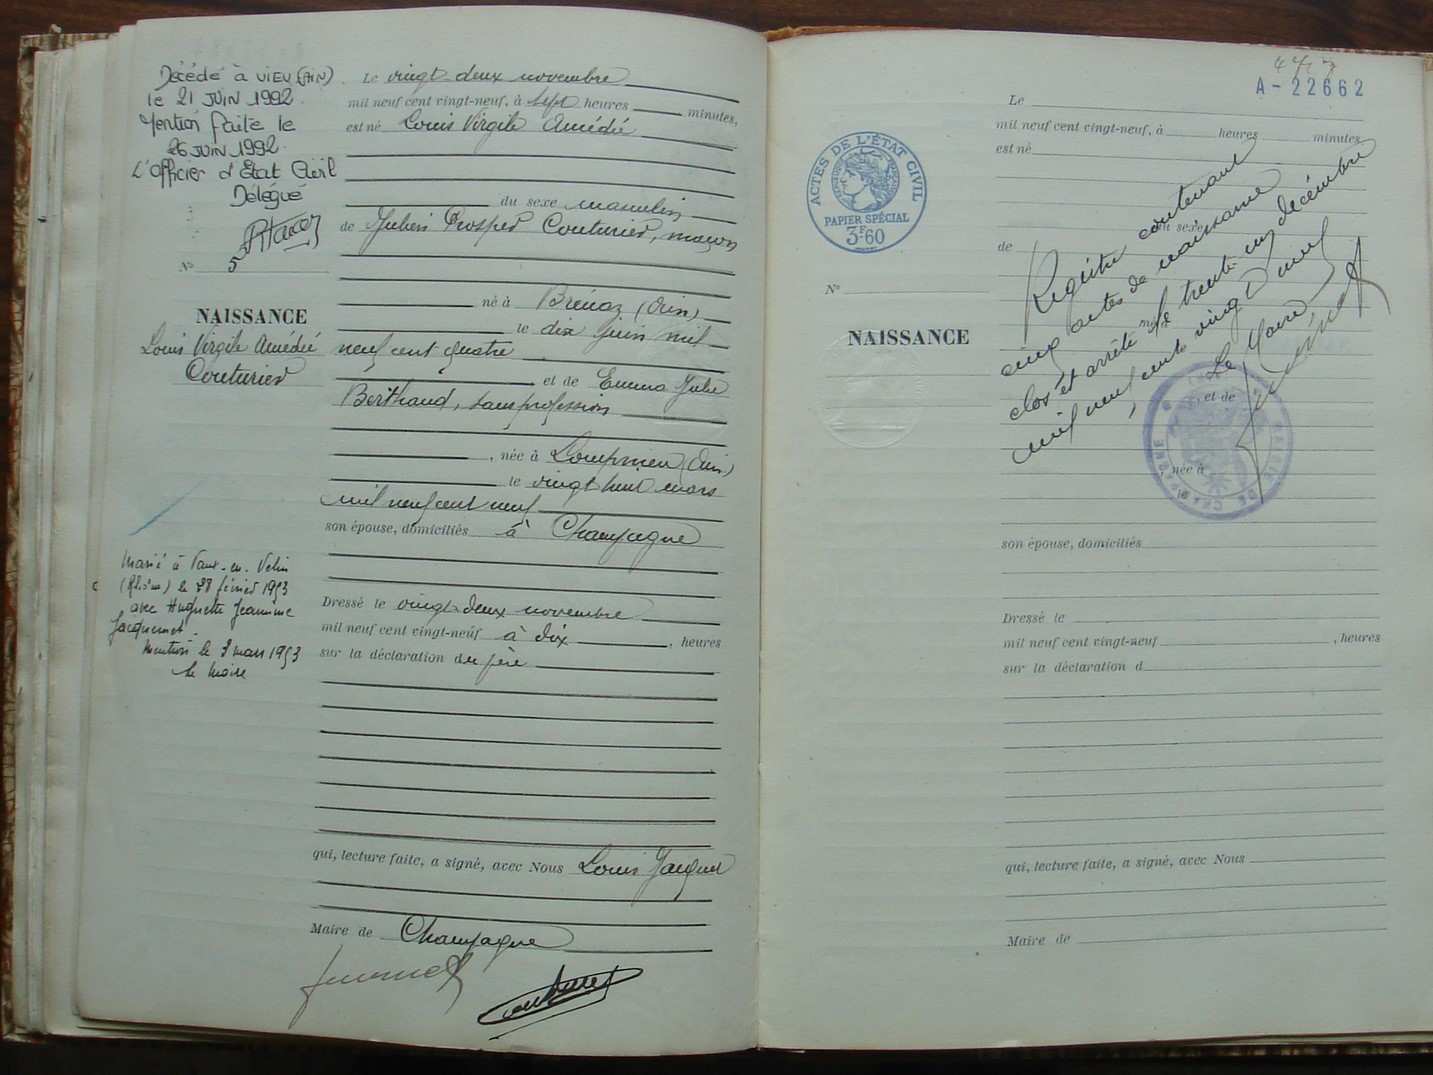 Décédé à VIEU (AIN)
le 21 JUIN 1992
Mention faite le
26 JUIN 1992
L'Officier d'Etat Civil
Délégué
No 5
NAISSANCE
Louis Virgile Amédée
Couturier
Marié à Vaux-en-Velin
(Rhône) le 28 février 1953
avec Huguette Jeannine
Jacquemet.
Mention le 3 mars 1953
le Maire
Le vingt-deux novembre
mil neuf cent vingt-neuf, à sept heures minutes,
est né Louis Virgile Amédée
du sexe masculin
de Julien Prosper Couturier, maçon
né à Brénaz (Ain)
le dix juin mil
neuf cent quatre
et de Emma Julie
Berthaud, sans profession
, née à Lompnieu (Ain)
le vingt huit mars
mil neuf cent neuf
son épouse, domiciliés à Champagne
Dressé le vingt-deux novembre
mil neuf cent vingt-neuf à dix , heures
sur la déclaration du père
qui, lecture faite, a signé, avec Nous Louis
Maire de Champagne
A-22662
ACTES DE L'ÉTAT CIVIL
PAPIER SPÉCIAL
3F60
No
NAISSANCE
Le
mil neuf cent vingt-neuf, à heures minutes
est né
du sexe
de
et de
née à
son épouse, domiciliés
Dressé le
mil neuf cent vingt-neuf , heures
sur la déclaration d
qui, lecture faite, a signé, avec Nous
Maire de
Registre contenant
cinq actes de naissance
clos et arrêté le trente-un décembre
mil neuf cent vingt neuf
Le Maire